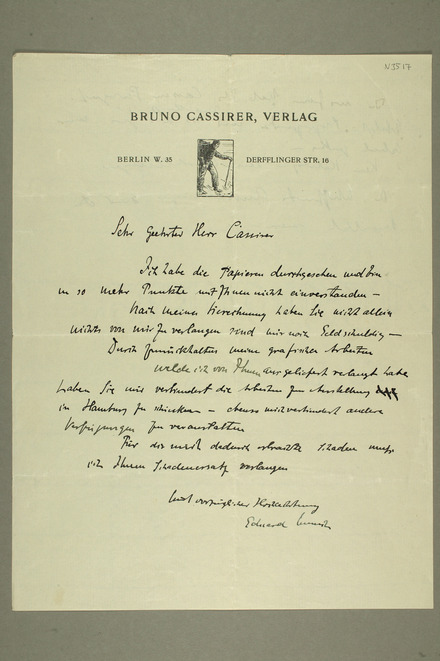 N 3517
BRUNO CASSIRER, VERLAG
BERLIN W. 35
DERFFLINGER STR. 16
Sehr geehrter Herr Cassirer
Ich habe die Papieren durchgesehen und bin
in so mehr Punkte mit Ihnen nicht einverstanden –
Nach meiner Berechnung haben Sie nicht allein
nichts von mir zu verlangen sind mir noch Geld schuldig –
Durch zurückhalten meine grafischen Arbeiten
welche ich von Ihnen ausgeliefert verlangt habe
haben Sie mir verhindert die Arbeiten zur Ausstellung
in Hamburg zu schicken – ebenso mich verhindert andere
Verfügungen zu veranstalten
Für die mich dadurch Schaden muss
ich Ihnen Schadenersatz verlangen
Mit vorzüglicher Hochachtung
Edvard Munch